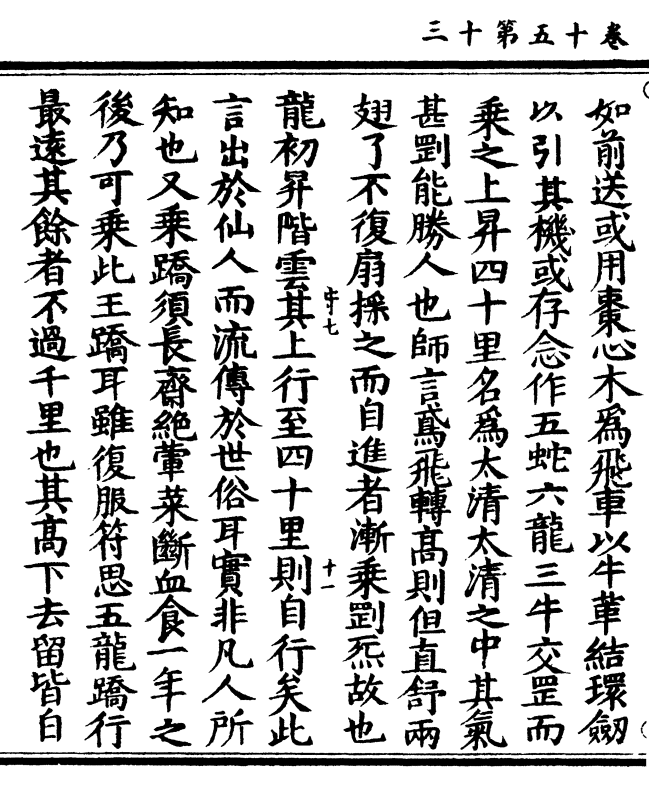 卷十五第十三
如前送或用棗心木為飛車以牛革結環劒
以引其機或存念作五蛇六龍三牛交罡而
乘之上昇四十里名為太清太清之中其氣
甚罡能勝人也師言鳶飛轉高則但直舒兩
翅了不復扇搖之而自進者漸乘罡炁故也
龍初昇階雲其上行至四十里則自行矣此
言出於仙人而流傳於世俗耳實非凡人所
知也又乘蹻須長齋絕葷菜斷血食一年之
後乃可乘此王蹻耳雖復服符思五龍蹻行
最遠其餘者不過千里也其高下去留皆自
字七
十一